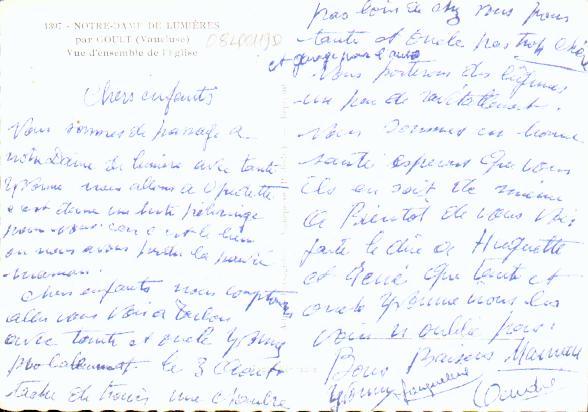 1397 - NOTRE-DAME DE LUMIÈRES
par GOULT (Vaucluse)
Vue d'ensemble de l'Eglise
Chers enfants
Vous sommes de passage a
notre Dame de lumiere avec tante
Yvonne nous allons a
c est donne une triste pélerinage
pour vous car c est le lieu
ou nous avons perdu la pauvre
maman.
Chers enfants nous comptons
aller vous voir a Toulon
avec tante et oncle Yvonne
probablement le 3 Août
tache de trouver une chambre
pas loin de chez vous pour
tante et oncle pas trop chère
et garage pour l auto
Vous porterons des légumes
un peu de ravitaillement.
Vous sommes en bonne
santé esperons que vous
ils en soit de même
a Bientot de vous voir
faite le dire a Huguette
et René que tante et
oncle Yvonne nous les
voir n oublie pas.
Bons Baisers Maman
Yvonne Jacqueline Claudine